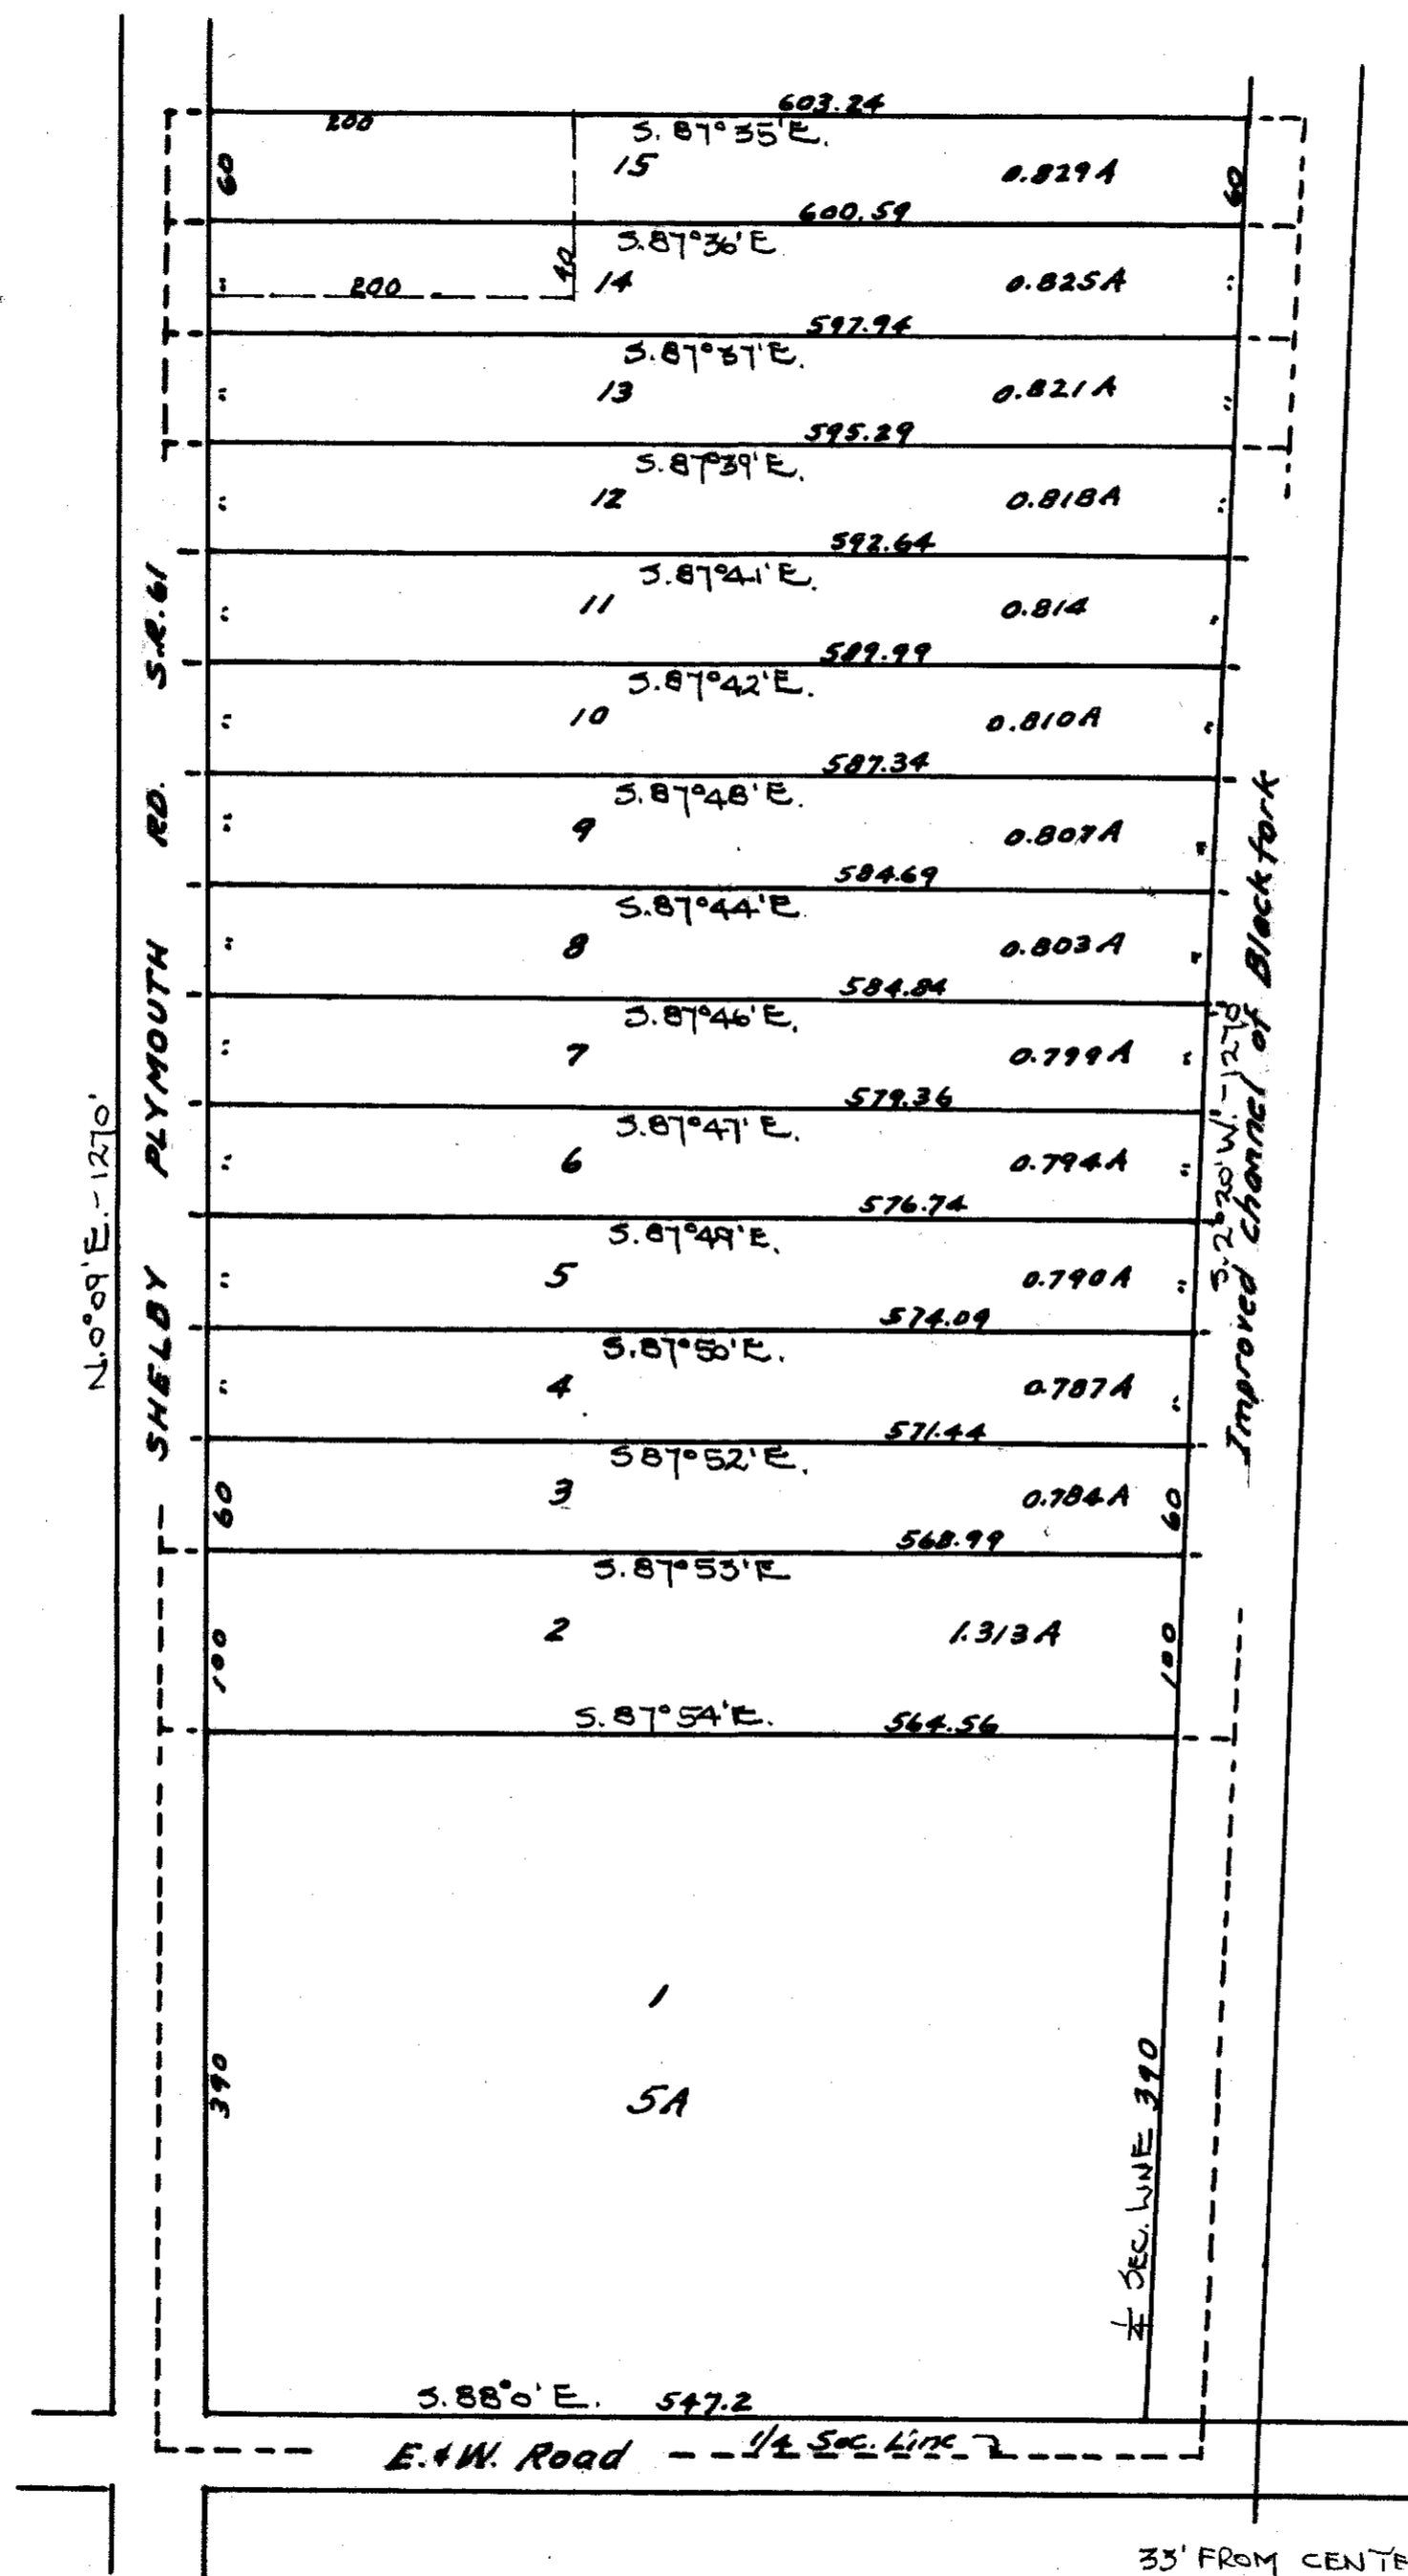 603.24
200
S. 87°35'E.
60
15
0.829A
60
600.59
S.87°36'E
40
200
14
0.825A
597.94
S.87°37'E.
13
0.821A
595.29
S.87°39'E.
12
0.818A
592.64
S.87°41'E.
11
0.814
589.99
S.87°42'E.
10
0.810A
587.34
S.87°48'E.
9
0.807A
584.69
S.87°44'E
8
0.803A
584.84
S.87°46'E.
7
0.799A
579.36
S.87°47'E.
6
0.794A
576.74
S.87°49'E.
5
0.790A
574.09
S.87°50'E.
4
0.787A
571.44
S87°52'E.
60
3
0.784A
60
568.99
S.87°53'E
100
2
1.313A
100
S.87°54'E.
564.56
1
5A
390
1/4 SEC. LINE 390
S.88°0'E.
547.2
E.&W. Road
1/4 Sec. Line
N.0°09'E.-1270'
SHELBY PLYMOUTH RD. S.R.61
S.2°20'W.-1270'
Improved channel of Blackfork
33' FROM CENTE